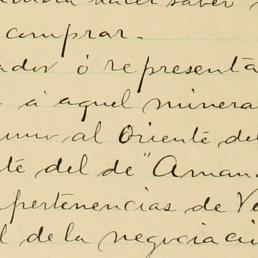 hacer saber
comprar.
ador ó representa
á aquel minera
umo al Oriente del
te del de "Aman
pertenencias de Ve
l de la negociaci